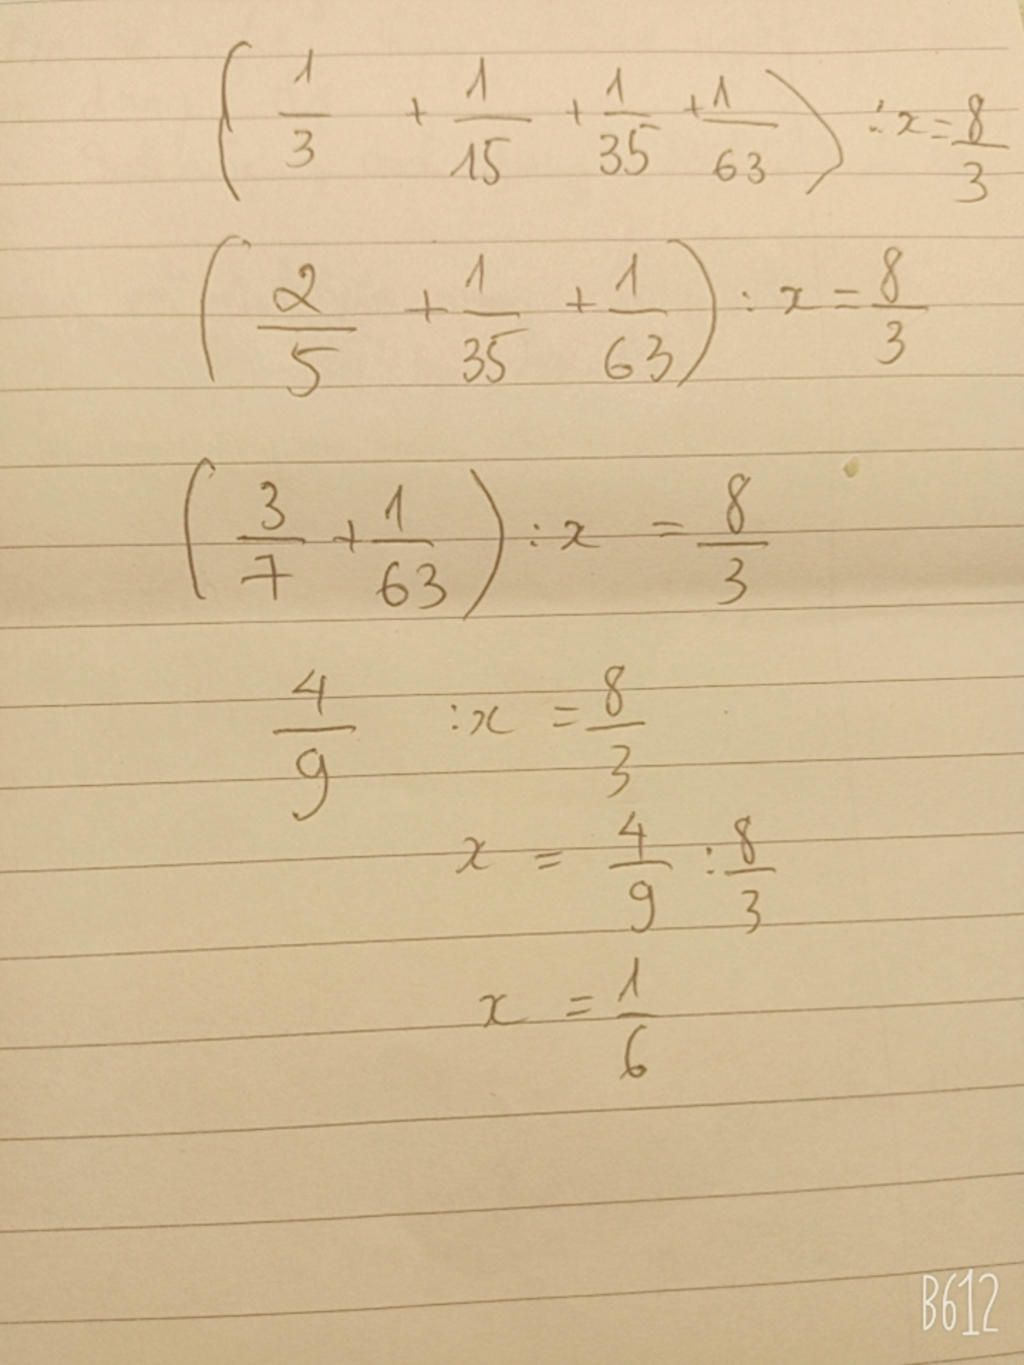 ( 1/3 + 1/15 + 1/35 + 1/63 ) : x = 8/3
( 2/5 + 1/35 + 1/63 ) : x = 8/3
( 3/7 + 1/63 ) : x = 8/3
4/9 : x = 8/3
x = 4/9 : 8/3
x = 1/6
B612